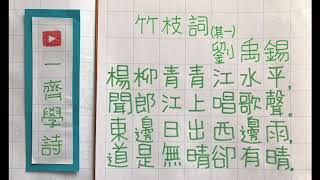 一齊學詩
竹枝詞(其一)
劉禹錫
楊柳青青江水平，
聞郎江上唱歌聲。
東邊日出西邊雨，
道是無晴卻有晴。